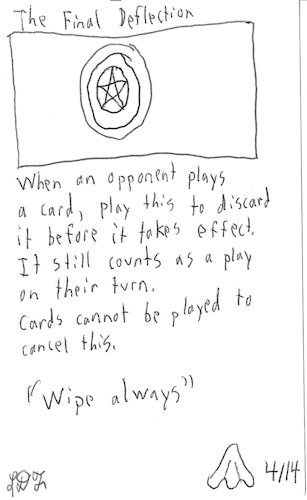 The Final Deflection
When an opponent plays
a card, play this to discard
it before it takes effect.
It still counts as a play
on their turn.
Cards cannot be played to
cancel this.
"Wipe always"
4/14